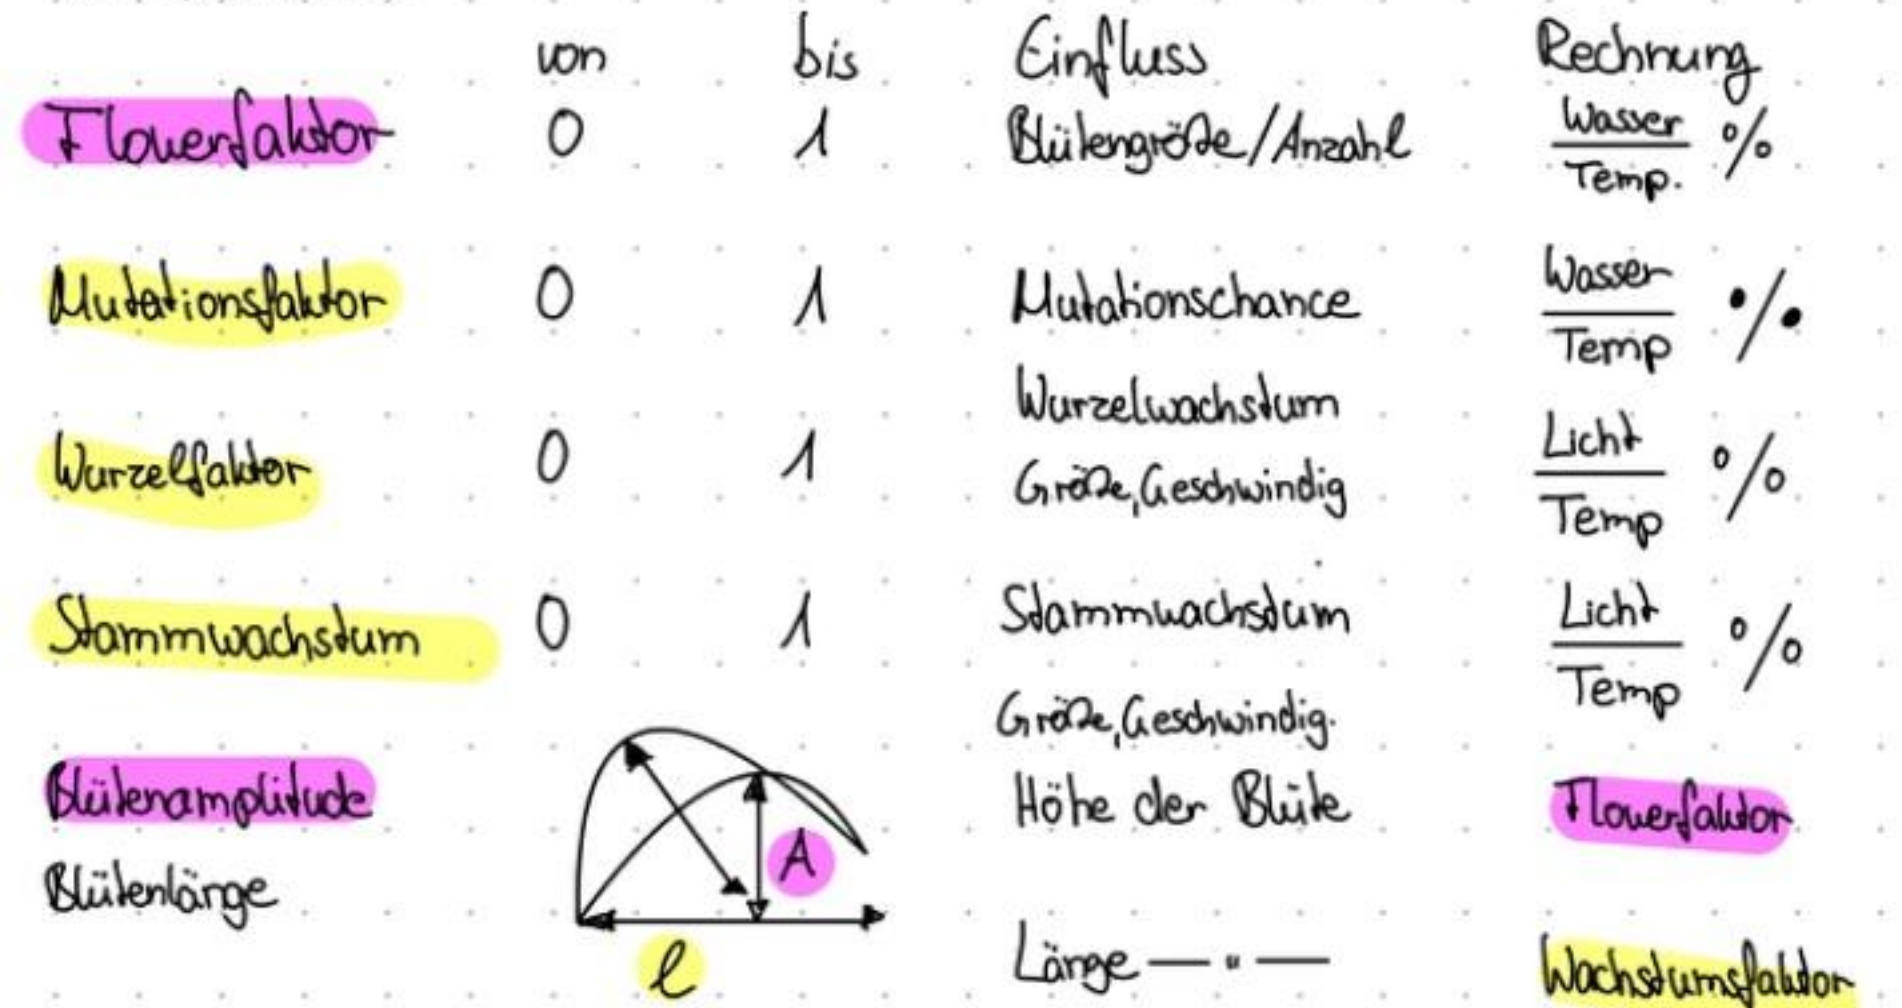 von bis Einfluss Rechnung
Flowerfaktor 0 1 Blütengröße/Anzahl Wasser/Temp. %
Mutationsfaktor 0 1 Mutationschance Wasser/Temp %
Wurzelwachstum
Wurzelfaktor 0 1 Größe, Geschwindig Licht/Temp %
Stammwachstum 0 1 Stammwachstum Licht/Temp %
Größe, Geschwindig.
Blütenamplitude Höhe der Blüte Flowerfaktor
A
Blütenlänge
l Länge — " — Wachstumsfaktor